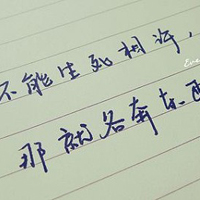 不能生死相许,
那就各奔东西